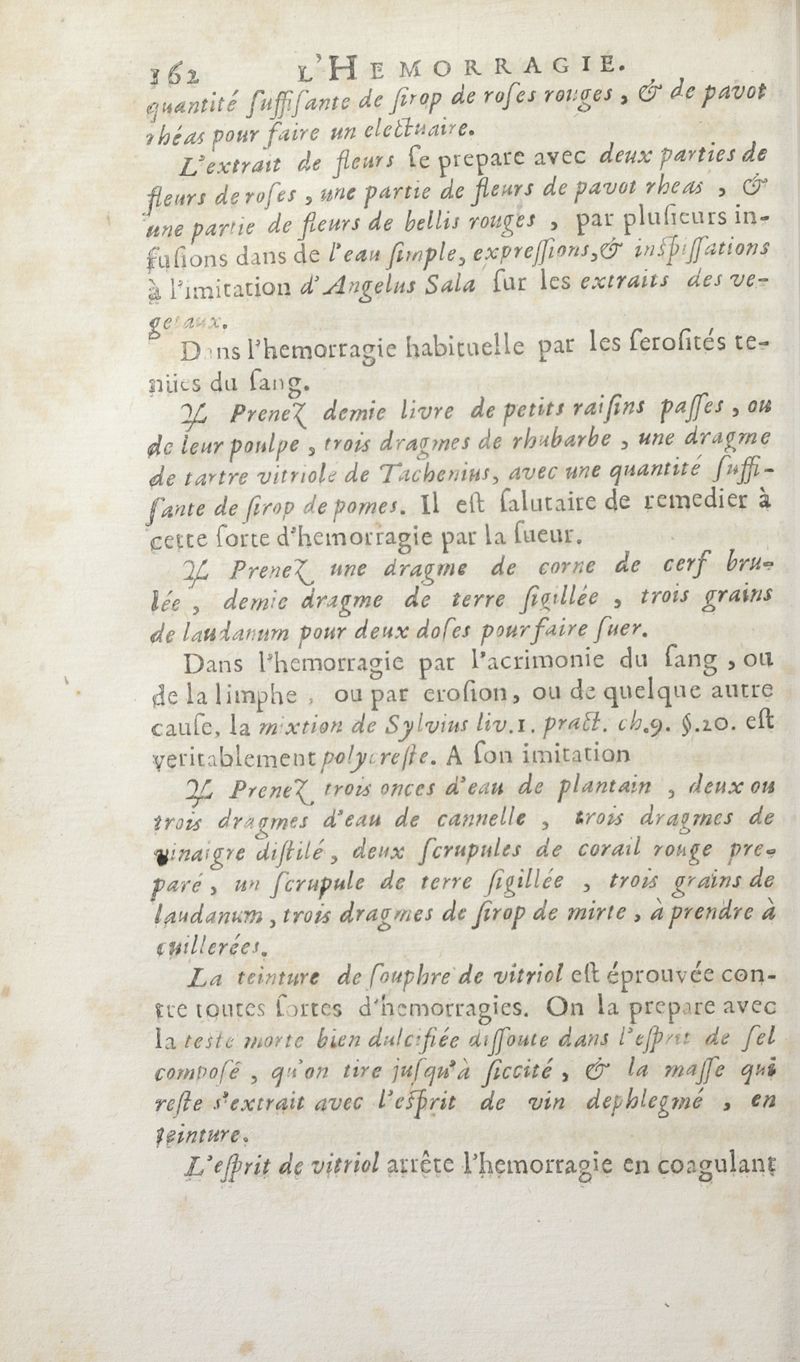 162 L'HEMORRAGIE.
quantité ſuffiſante de ſirop de roſes rouges, & de pavot
rhéas pour faire un electuaire.
L'extrait de fleurs ſe prepare avec deux parties de
fleurs de roſes, une partie de fleurs de pavot rheas, &
une partie de fleurs de bellis rouges, par pluſieurs in-
fuſions dans de l'eau ſimple, expreſſions, & inſpiſſations
à l'imitation d'Angelus Sala ſur les extraits des ve-
getaux.
Dans l'hemorragie habituelle par les ſeroſités te-
nües du ſang.
♃ Prenez demie livre de petits raiſins paſſes, ou
de leur poulpe, trois dragmes de rhubarbe, une dragme
de tartre vitriolé de Tachenius, avec une quantité ſuffi-
ſante de ſirop de pomes. Il eſt ſalutaire de remedier à
cette ſorte d'hemorragie par la ſueur.
♃ Prenez une dragme de corne de cerf bru-
lée, demie dragme de terre ſigillée, trois grains
de laudanum pour deux doſes pour faire ſuer.
Dans l'hemorragie par l'acrimonie du ſang, ou
de la limphe, ou par eroſion, ou de quelque autre
cauſe, la mixtion de Sylvius liv.1. pract. ch.9. §.20. eſt
veritablement polycreſte. A ſon imitation
♃ Prenez trois onces d'eau de plantain, deux ou
trois dragmes d'eau de cannelle, trois dragmes de
vinaigre diſtilé, deux ſcrupules de corail rouge pre-
paré, un ſcrupule de terre ſigillée, trois grains de
laudanum, trois dragmes de ſirop de mirte, à prendre à
cuillerées.
La teinture de ſouphre de vitriol eſt éprouvée con-
tre toutes ſortes d'hemorragies. On la prepare avec
la teste morte bien dulcifiée diſſoute dans l'eſprit de ſel
compoſé, qu'on tire juſqu'à ſiccité, & la maſſe qui
reſte s'extrait avec l'eſprit de vin dephlegmé, en
teinture.
L'eſprit de vitriol arrête l'hemorragie en coagulant